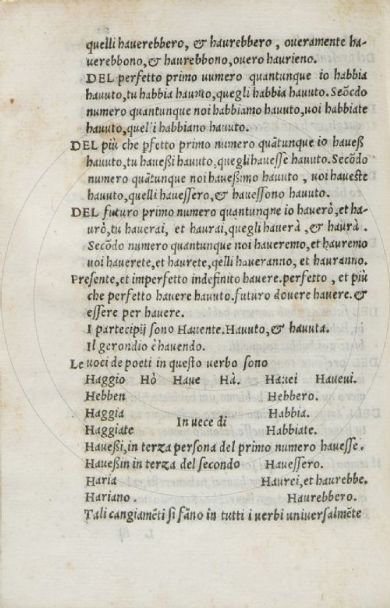 quelli hauerebbero, & haurebbero, oueramente ha-
uerebbono, & haurebbono, ouero haurieno.
DEL perfetto primo numero quantunque io habbia
hauuto, tu habbia hauuto, quegli habbia hauuto. Secōdo
numero quantunque noi habbiamo hauuto, uoi habbiate
hauuto, quelli habbiano hauuto.
DEL più che pfetto primo numero quātunque io haueßi
hauuto, tu haueßi hauuto, quegli hauesse hauuto. Secōdo
numero quātunque noi haueßimo hauuto, uoi haueste
hauuto, quelli hauessero, & hauessono hauuto.
DEL futuro primo numero quantunque io hauerò, et ha-
urò, tu hauerai, et haurai, quegli hauerà, & haurà.
Secōdo numero quantunque noi haueremo, et hauremo
uoi hauerete, et haurete, qelli haueranno, et hauranno.
Presente, et imperfetto indefinito hauere. perfetto, et più
che perfetto hauere hauuto. futuro douere hauere. &
essere per hauere.
I partecipij sono Hauente. Hauuto, & hauuta.
Il gerondio è hauendo.
Le uoci de poeti in questo uerbo sono
Haggio Hò Haue Hà. Hauei Haueui.
Hebben Hebbero.
Haggia Habbia.
In uece di
Haggiate Habbiate.
Haueßi, in terza persona del primo numero hauesse.
Haueßin in terza del secondo Hauessero.
Haria Haurei, et haurebbe.
Hariano. Haurebbero.
Tali cangiamēti si fāno in tutti i uerbi uniuersalmēte